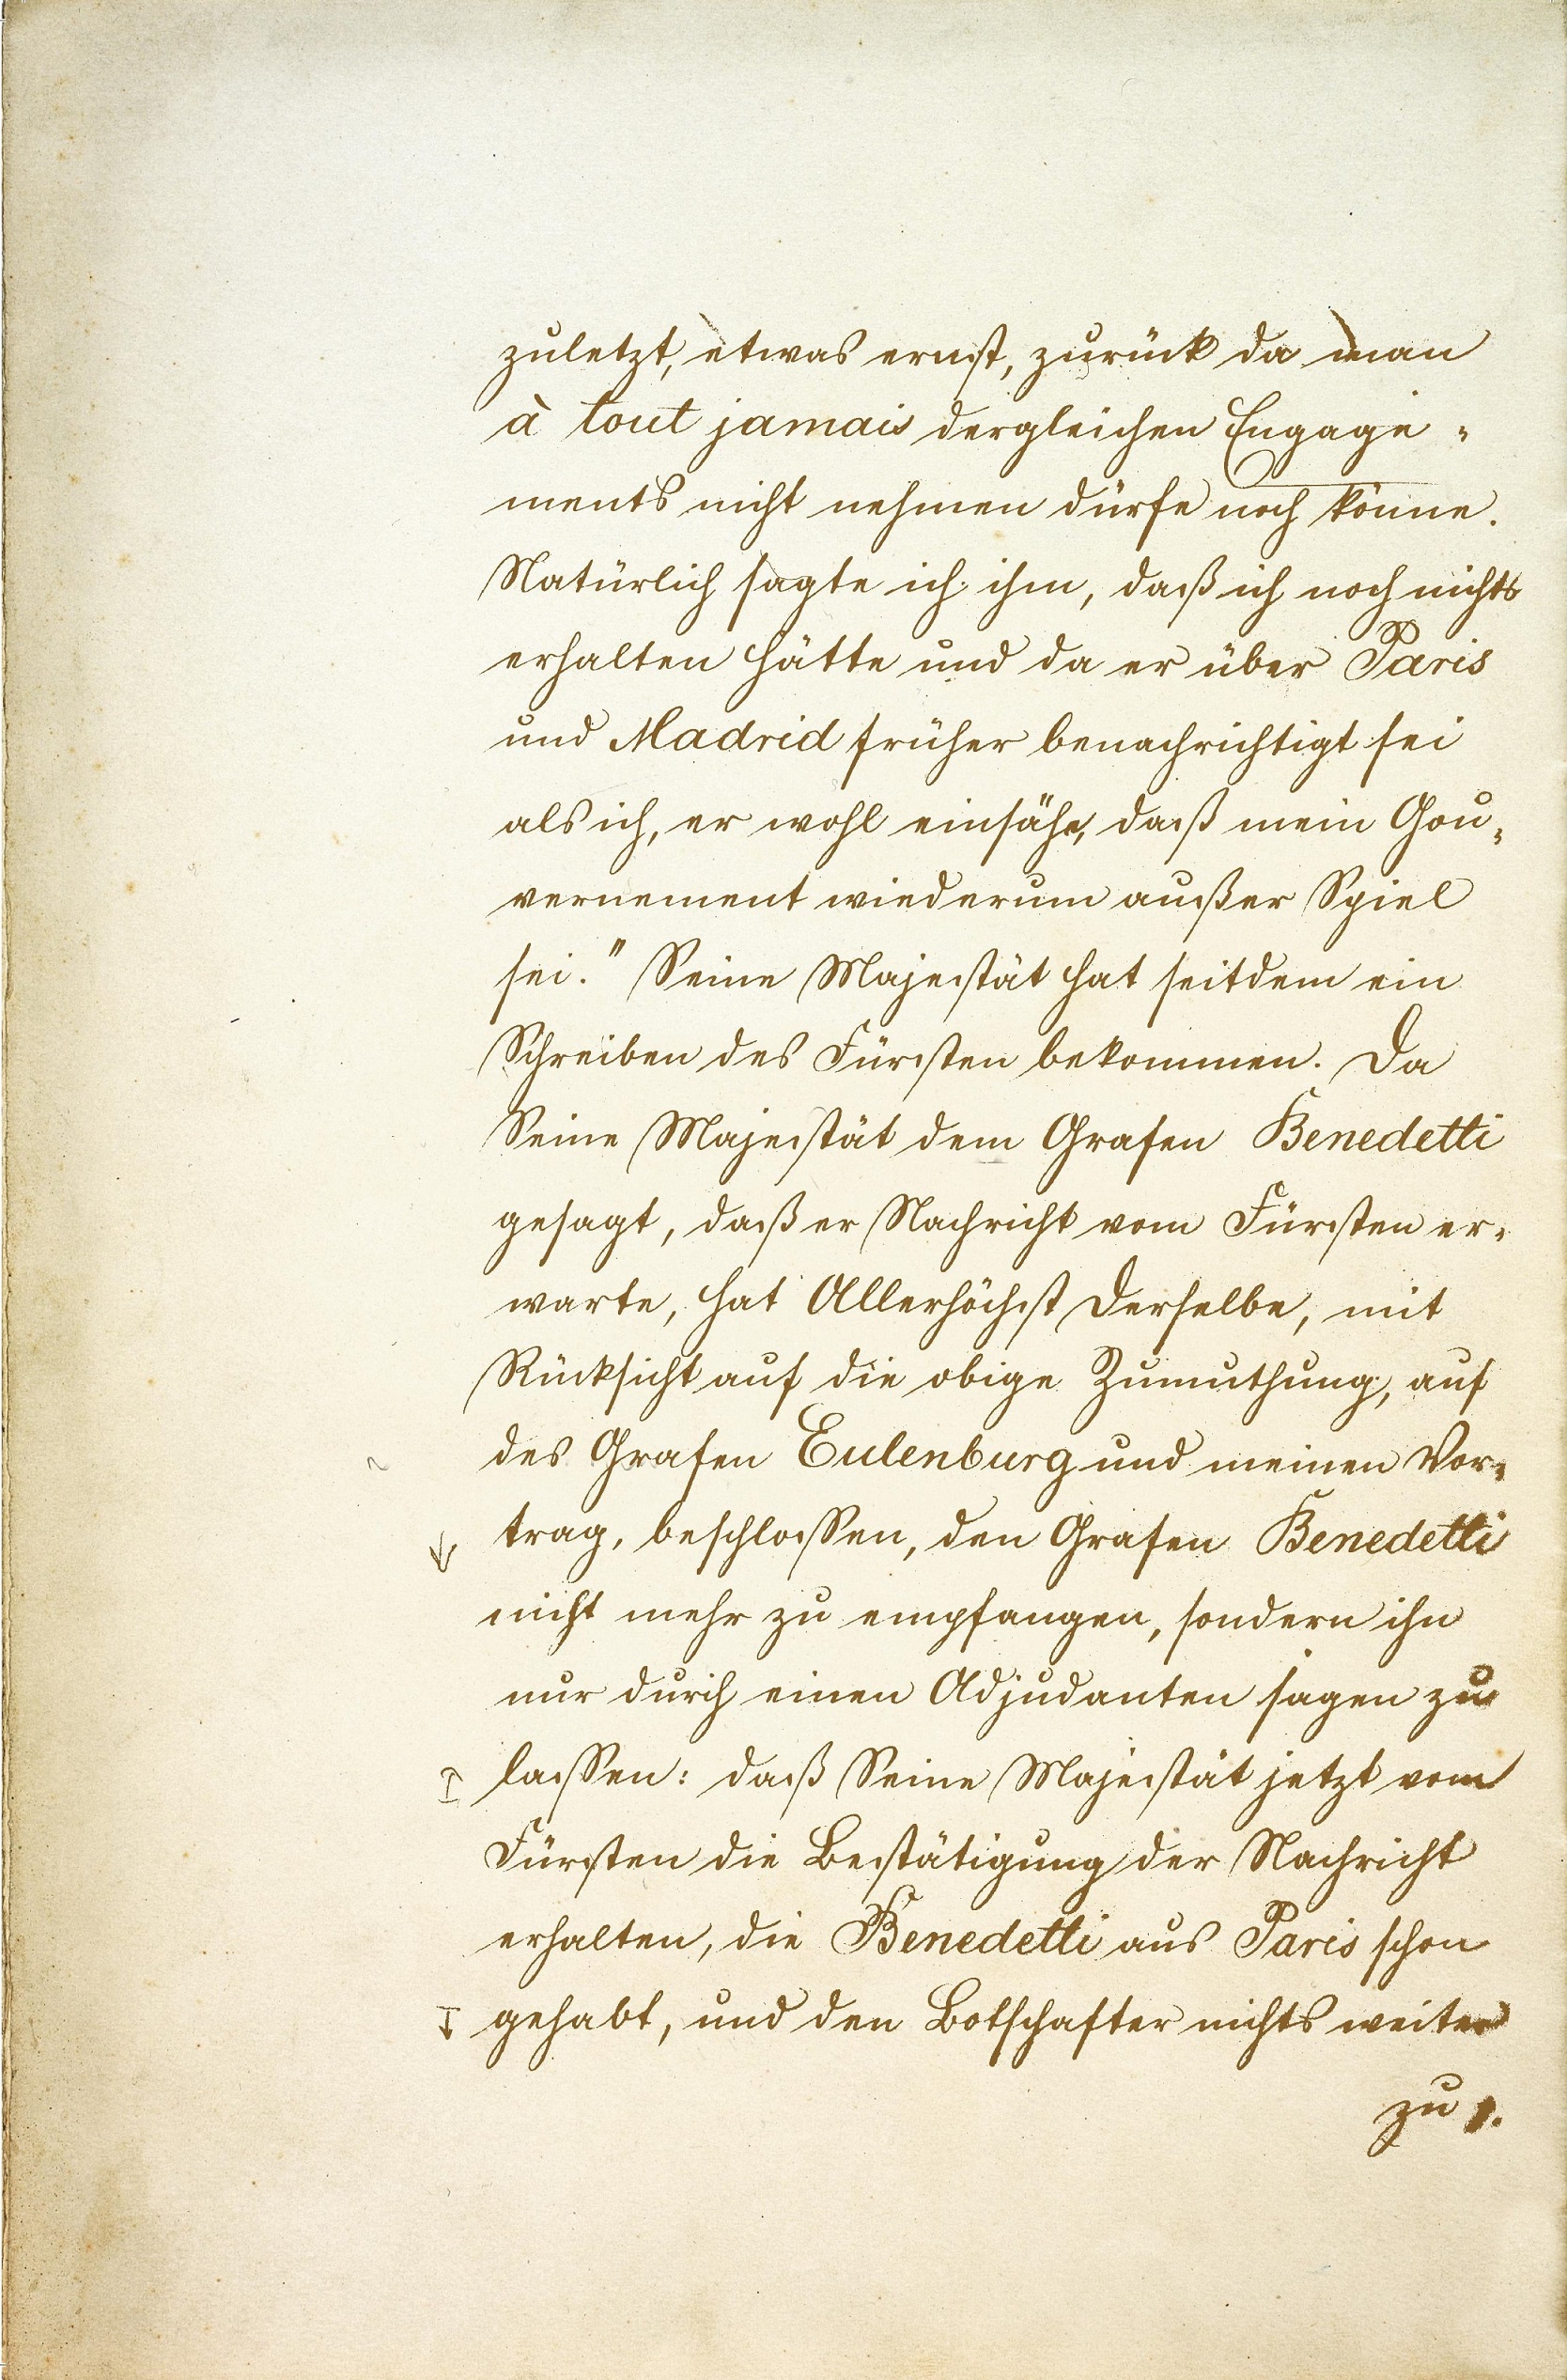 zuletzt, etwas ernst, zurück da man
à tout jamais dergleichen Engage-
ments nicht nehmen dürfe noch könne.
Natürlich sagte ich ihm, daß ich noch nichts
erhalten hätte und da er über Paris
und Madrid früher benachrichtigt sei
als ich, er wohl einsähe, daß mein Gou-
vernement wiederum außer Spiel
sei." Seine Majestät hat seitdem ein
Schreiben des Fürsten bekommen. Da
Seine Majestät dem Grafen Benedetti
gesagt, daß er Nachricht vom Fürsten er-
warte, hat Allerhöchst Derselbe, mit
Rücksicht auf die obige Zumuthung, auf
des Grafen Eulenburg und meinen Vor-
trag, beschlossen, den Grafen Benedetti
nicht mehr zu empfangen, sondern ihn
nur durch einen Adjudanten sagen zu
lassen: daß Seine Majestät jetzt vom
Fürsten die Bestätigung der Nachricht
erhalten, die Benedetti aus Paris schon
gehabt, und den Botschafter nichts weiter
zu